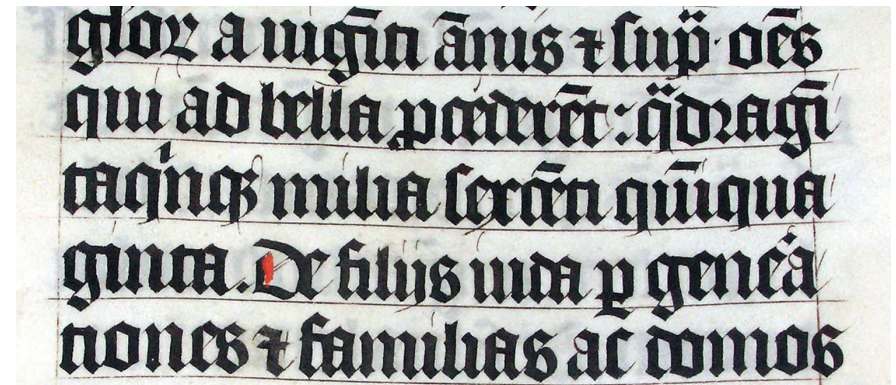 gloꝝ a uigīti ānis ⁊ sup̈ oēs
qui ad bella ꝓcederēt : q̈dragī
taqⁱnqꝫ milia sexcēti quīqua
ginta. De filijs iuda ꝑ gene͛a
tiones ⁊ familias ac domos